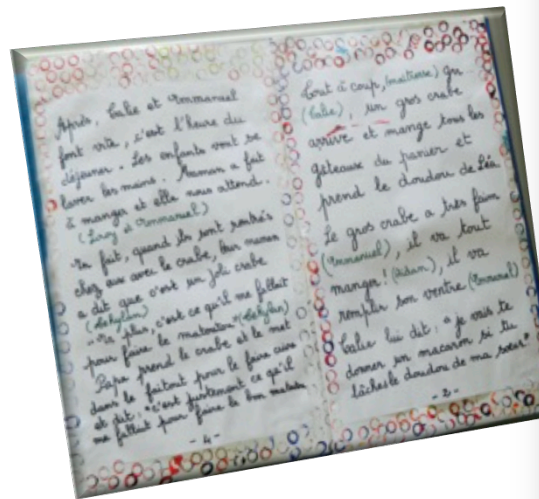 Après, Calie et Emmanuel
font vite, c'est l'heure du
déjeuner. Les enfants vont se
laver les mains. Maman a fait
à manger et elle nous attend.
(Lroy et Emmanuel)
En fait, quand ils sont rentrés
chez eux avec le crabe, leur maman
a dit que c'est un joli crabe
"En plus, c'est ce qu'il me fallait
pour faire le matoutou"
Papa prend le crabe et le met
dans le faitout pour le faire cuire
et dit: "c'est justement ce qu'il
me fallait pour faire le bon matoutou
- 4 -
Tout à coup, (maîtresse) gu
(Calie), un gros crabe
arrive et mange tous les
gâteaux du panier et
prend le doudou de Léa
Le gros crabe a très faim
(Emmanuel), il va tout
manger! (Aidan), il va
remplir son ventre (Emmanuel)
Calie lui dit: "je vais te
donner un macaron si tu
lâches le doudou de ma soeur"
- 2 -